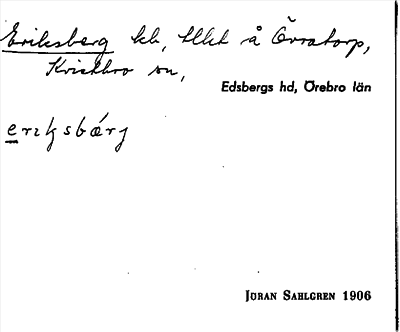 Eriksberg lh, tllhl å Övratorp,
Kvistbro sn,
Edsbergs hd, Örebro län
eriksbärj
JÖRAN SAHLGREN 1906